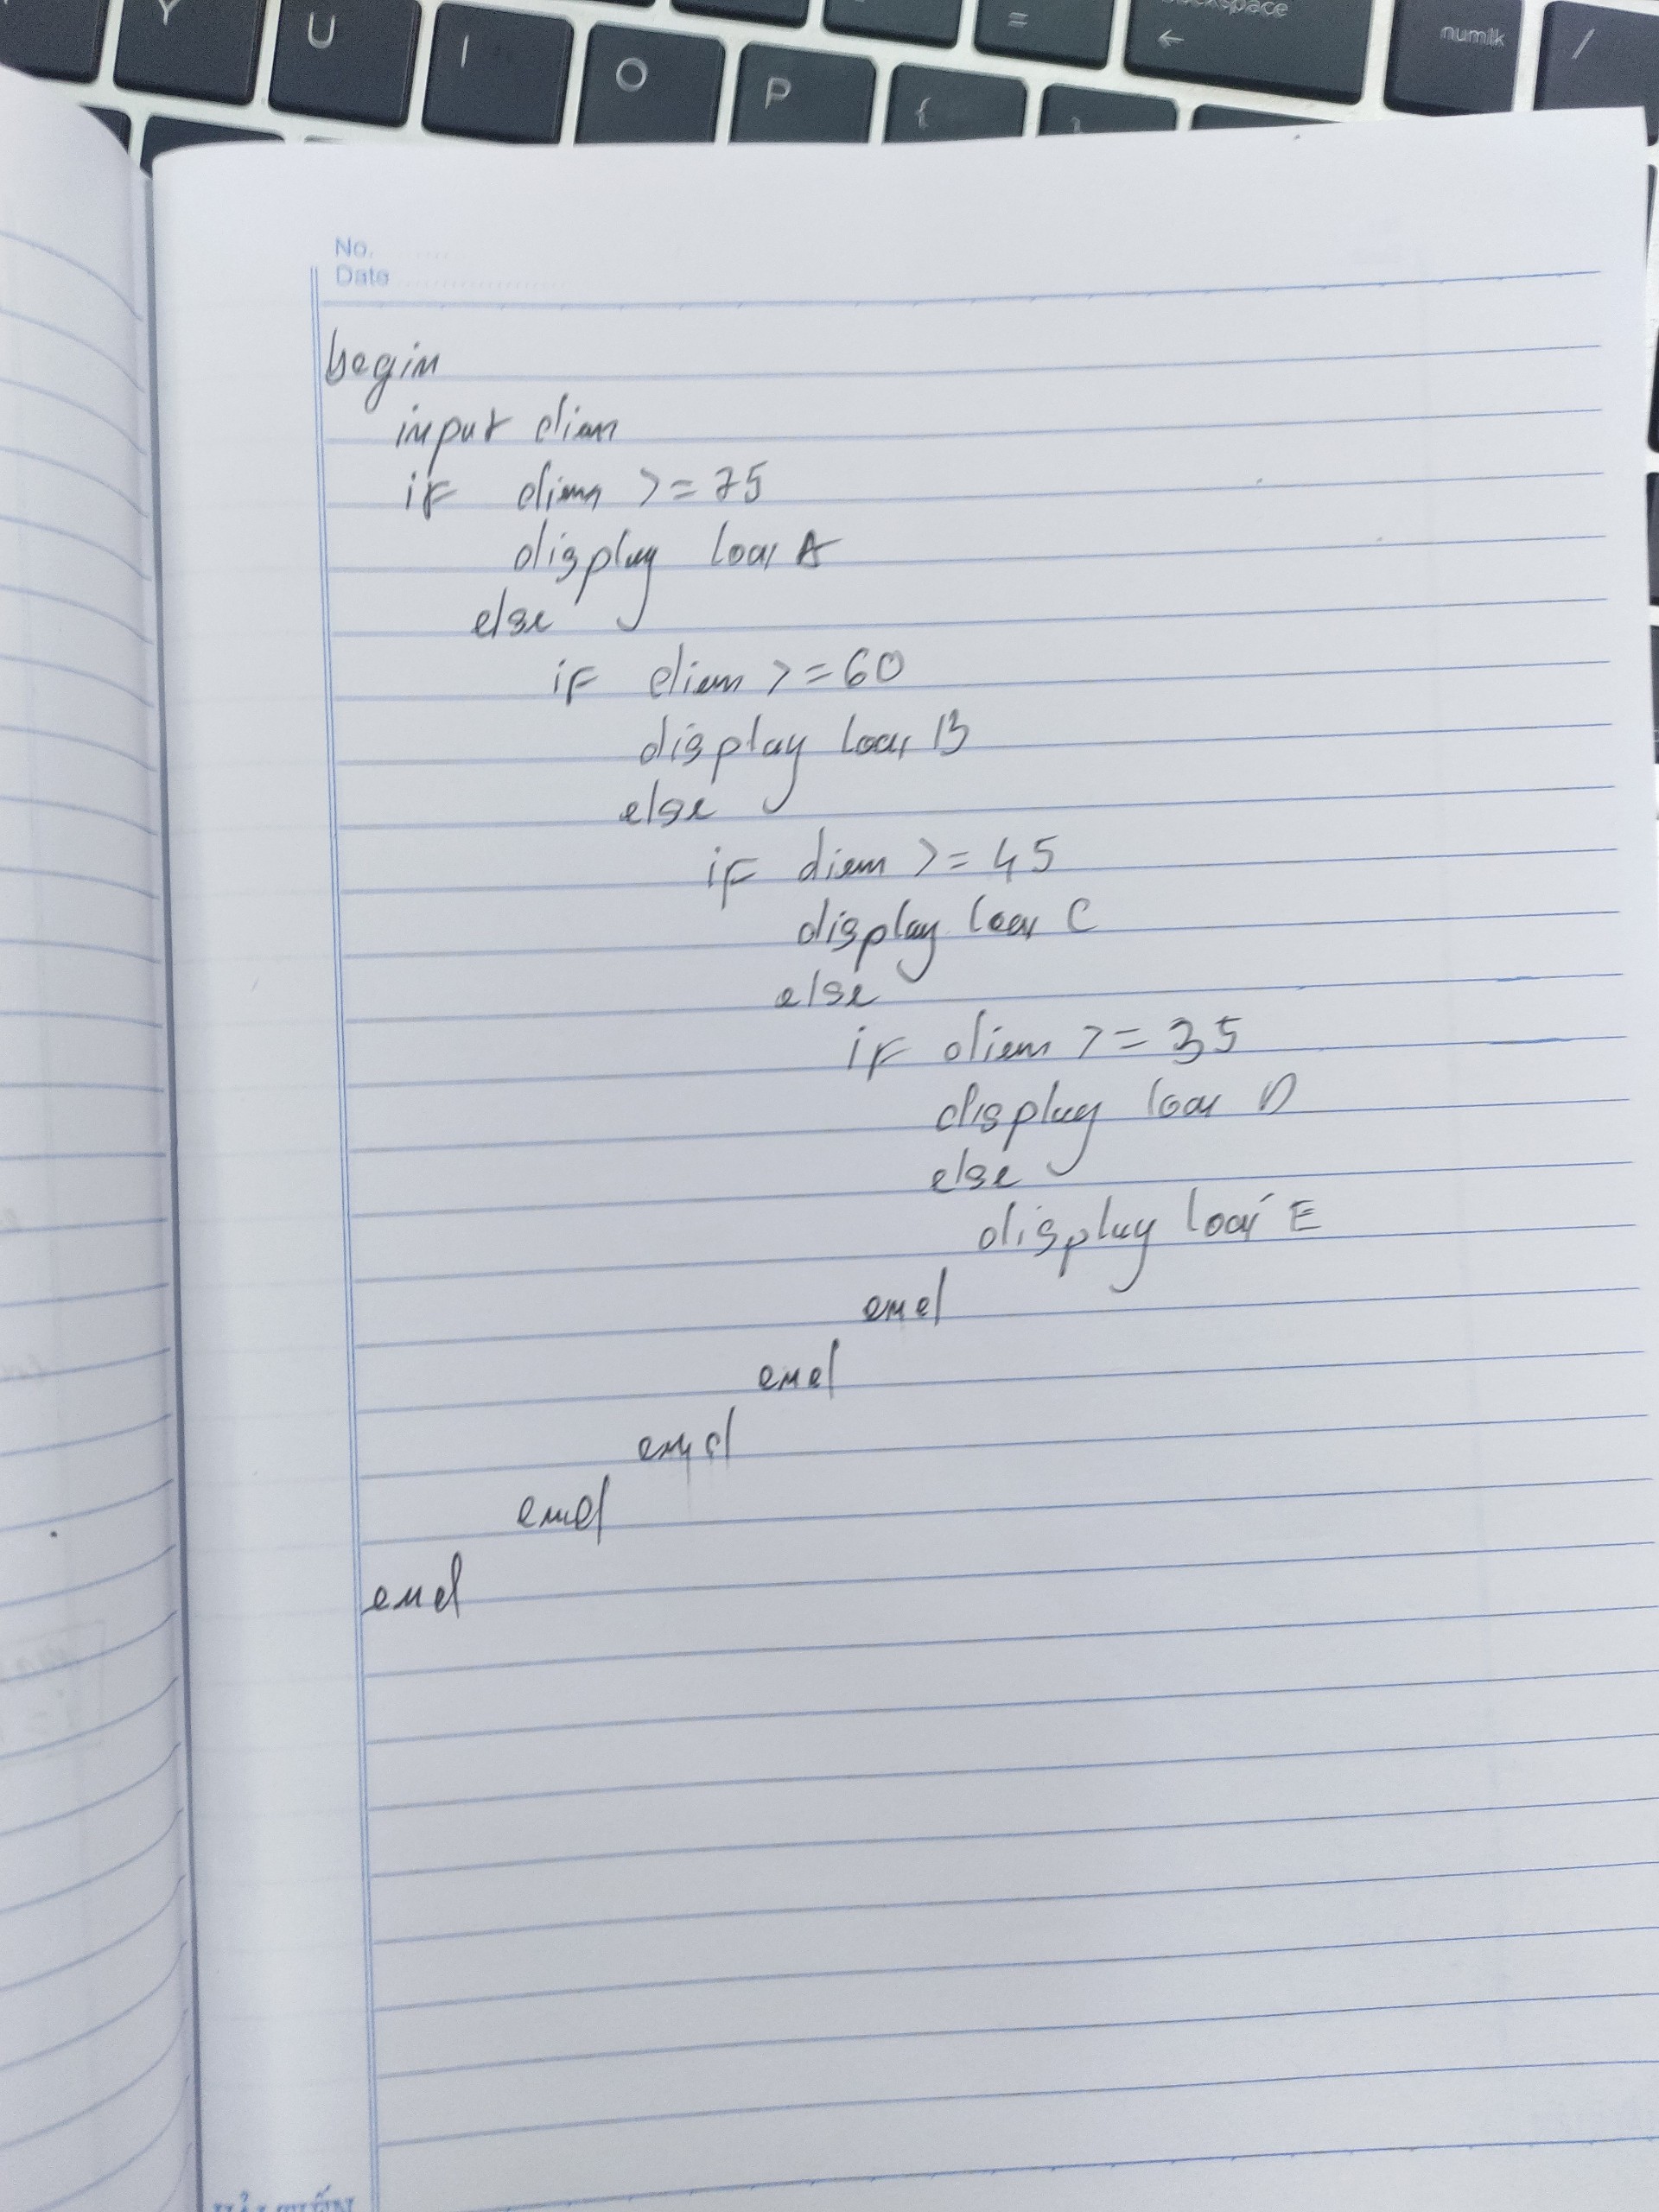 Y U I O P { } = backspace ← numlk /
No.
Date
begin
input diem
if diem >= 75
display loai A
else
if diem >= 60
display loai B
else
if diem >= 45
display loai C
else
if diem >= 35
display loai D
else
display loai E
end
end
end
end
end
HẢI TIẾN